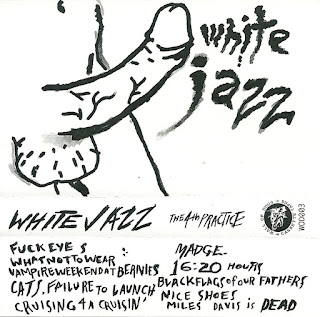 white
jazz
WHITE JAZZ THE 4th PRACTICE
WOD003
FUCKEYES
WHATNOTTOWEAR:
VAMPIREWEEKENDATBERNIES
CATS. FAILURE TO LAUNCH
CRUISING 4A CRUISIN'
MADGE.
16:20 HOURS
BLACKFLAGSOFOUR FATHERS
NICE SHOES
MILES DAVIS is DEAD